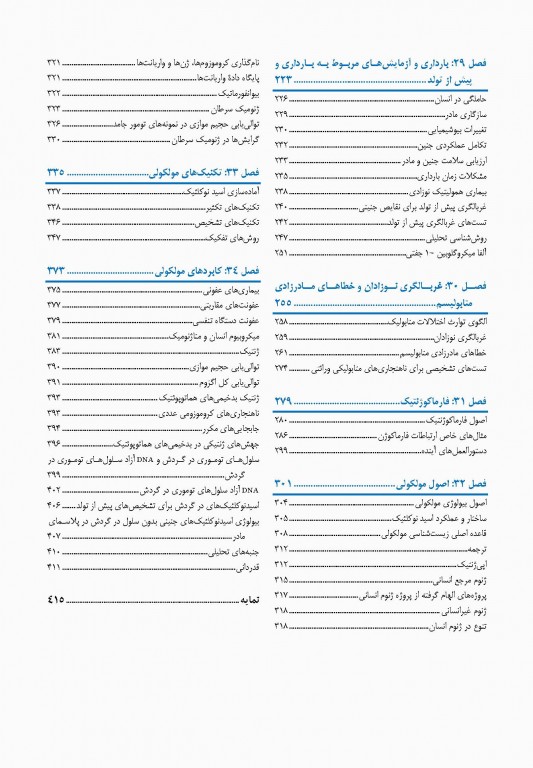 فصل ۲۹: بارداری و آزمایش‌های مربوط به بارداری و
پیش از تولد ۲۲۳
حاملگی در انسان ۲۲۶
سازگاری مادر ۲۲۹
تغییرات بیوشیمیایی ۲۳۰
تکامل عملکردی جنین ۲۳۲
ارزیابی سلامت جنین و مادر ۲۳۳
مشکلات زمان بارداری ۲۳۵
بیماری همولیتیک نوزادی ۲۳۸
غربالگری پیش از تولد برای نقایص جنینی ۲۴۰
تست‌های غربالگری پیش از تولد ۲۴۲
روش‌شناسی تحلیلی ۲۴۷
آلفا میکروگلوبین -۱ جفتی ۲۵۱
فصل ۳۰: غربالگری نوزادان و خطاهای مادرزادی
متابولیسم ۲۵۵
الگوی توارث اختلالات متابولیک ۲۵۸
غربالگری نوزادان ۲۵۹
خطاهای مادرزادی متابولیسم ۲۶۱
تست‌های تشخیصی برای ناهنجاری‌های متابولیکی وراثتی ۲۷۴
فصل ۳۱: فارماکوژنتیک ۲۷۹
اصول فارماکوژنتیک ۲۸۰
مثال‌های خاص ارتباطات فارماکوژن ۲۸۶
دستورالعمل‌های آینده ۲۹۹
فصل ۳۲: اصول مولکولی ۳۰۱
اصول بیولوژی مولکولی ۳۰۴
ساختار و عملکرد اسید نوکلئیک ۳۰۵
قاعده اصلی زیست‌شناسی مولکولی ۳۰۸
ترجمه ۳۱۲
اپی‌ژنتیک ۳۱۲
ژنوم مرجع انسانی ۳۱۵
پروژه‌های الهام گرفته از پروژه ژنوم انسانی ۳۱۷
ژنوم غیرانسانی ۳۱۸
تنوع در ژنوم انسان ۳۱۸
نام‌گذاری کروموزوم‌ها، ژن‌ها و واریانت‌ها ۳۲۱
پایگاه دادهٔ واریانت‌ها ۳۲۱
بیوانفورماتیک ۳۲۲
ژنومیک سرطان ۳۲۳
توالی‌یابی حجیم موازی در نمونه‌های تومور جامد ۳۲۶
گرایش‌ها در ژنومیک سرطان ۳۳۰
فصل ۳۳: تکنیک‌های مولکولی ۳۳۵
آماده‌سازی اسید نوکلئیک ۳۳۷
تکنیک‌های تکثیر ۳۳۸
تکنیک‌های تشخیص ۳۴۶
روش‌های تفکیک ۳۴۷
فصل ۳۴: کابردهای مولکولی ۳۷۳
بیماری‌های عفونی ۳۷۵
عفونت‌های مقاربتی ۳۷۷
عفونت دستگاه تنفسی ۳۷۹
میکروبیوم انسان و متاژنومیک ۳۸۱
ژنتیک ۳۸۳
توالی‌یابی حجیم موازی ۳۹۰
توالی‌یابی کل اگزوم ۳۹۱
ژنتیک بدخیمی‌های هماتوپوئتیک ۳۹۳
ناهنجاری‌های کروموزومی عددی ۳۹۳
جابجایی‌های مکرر ۳۹۴
جهش‌های ژنتیکی در بدخیمی‌های هماتوپوئتیک ۳۹۶
سلول‌های توموری در گردش و DNA آزاد سلول‌های توموری در
گردش ۳۹۹
DNA آزاد سلول‌های توموری در گردش ۴۰۲
اسیدنوکلئیک‌های در گردش برای تشخیص‌های پیش از تولد ۴۰۶
بیولوژی اسیدنوکلئیک‌های جنینی بدون سلول در گردش در پلاسمای
مادر ۴۰۷
جنبه‌های تحلیلی ۴۱۰
قدردانی ۴۱۱
نمایه ۴۱۵